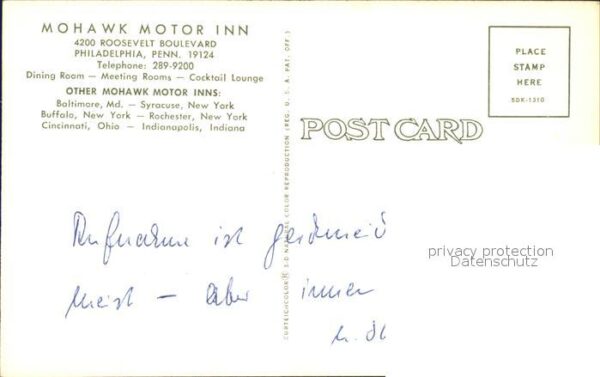 MOHAWK MOTOR INN
4200 ROOSEVELT BOULEVARD
PHILADELPHIA, PENN. 19124
Telephone: 289-9200
Dining Room — Meeting Rooms — Cocktail Lounge
OTHER MOHAWK MOTOR INNS:
Baltimore, Md. — Syracuse, New York
Buffalo, New York — Rochester, New York
Cincinnati, Ohio — Indianapolis, Indiana
CURTEICHCOLOR® 3-D NATURAL COLOR REPRODUCTION (REG. U.S.A. PAT. OFF.)
POST CARD
PLACE
STAMP
HERE
5DK-1310
privacy protection
Datenschutz
Aufnahme ist
meist — aber immer